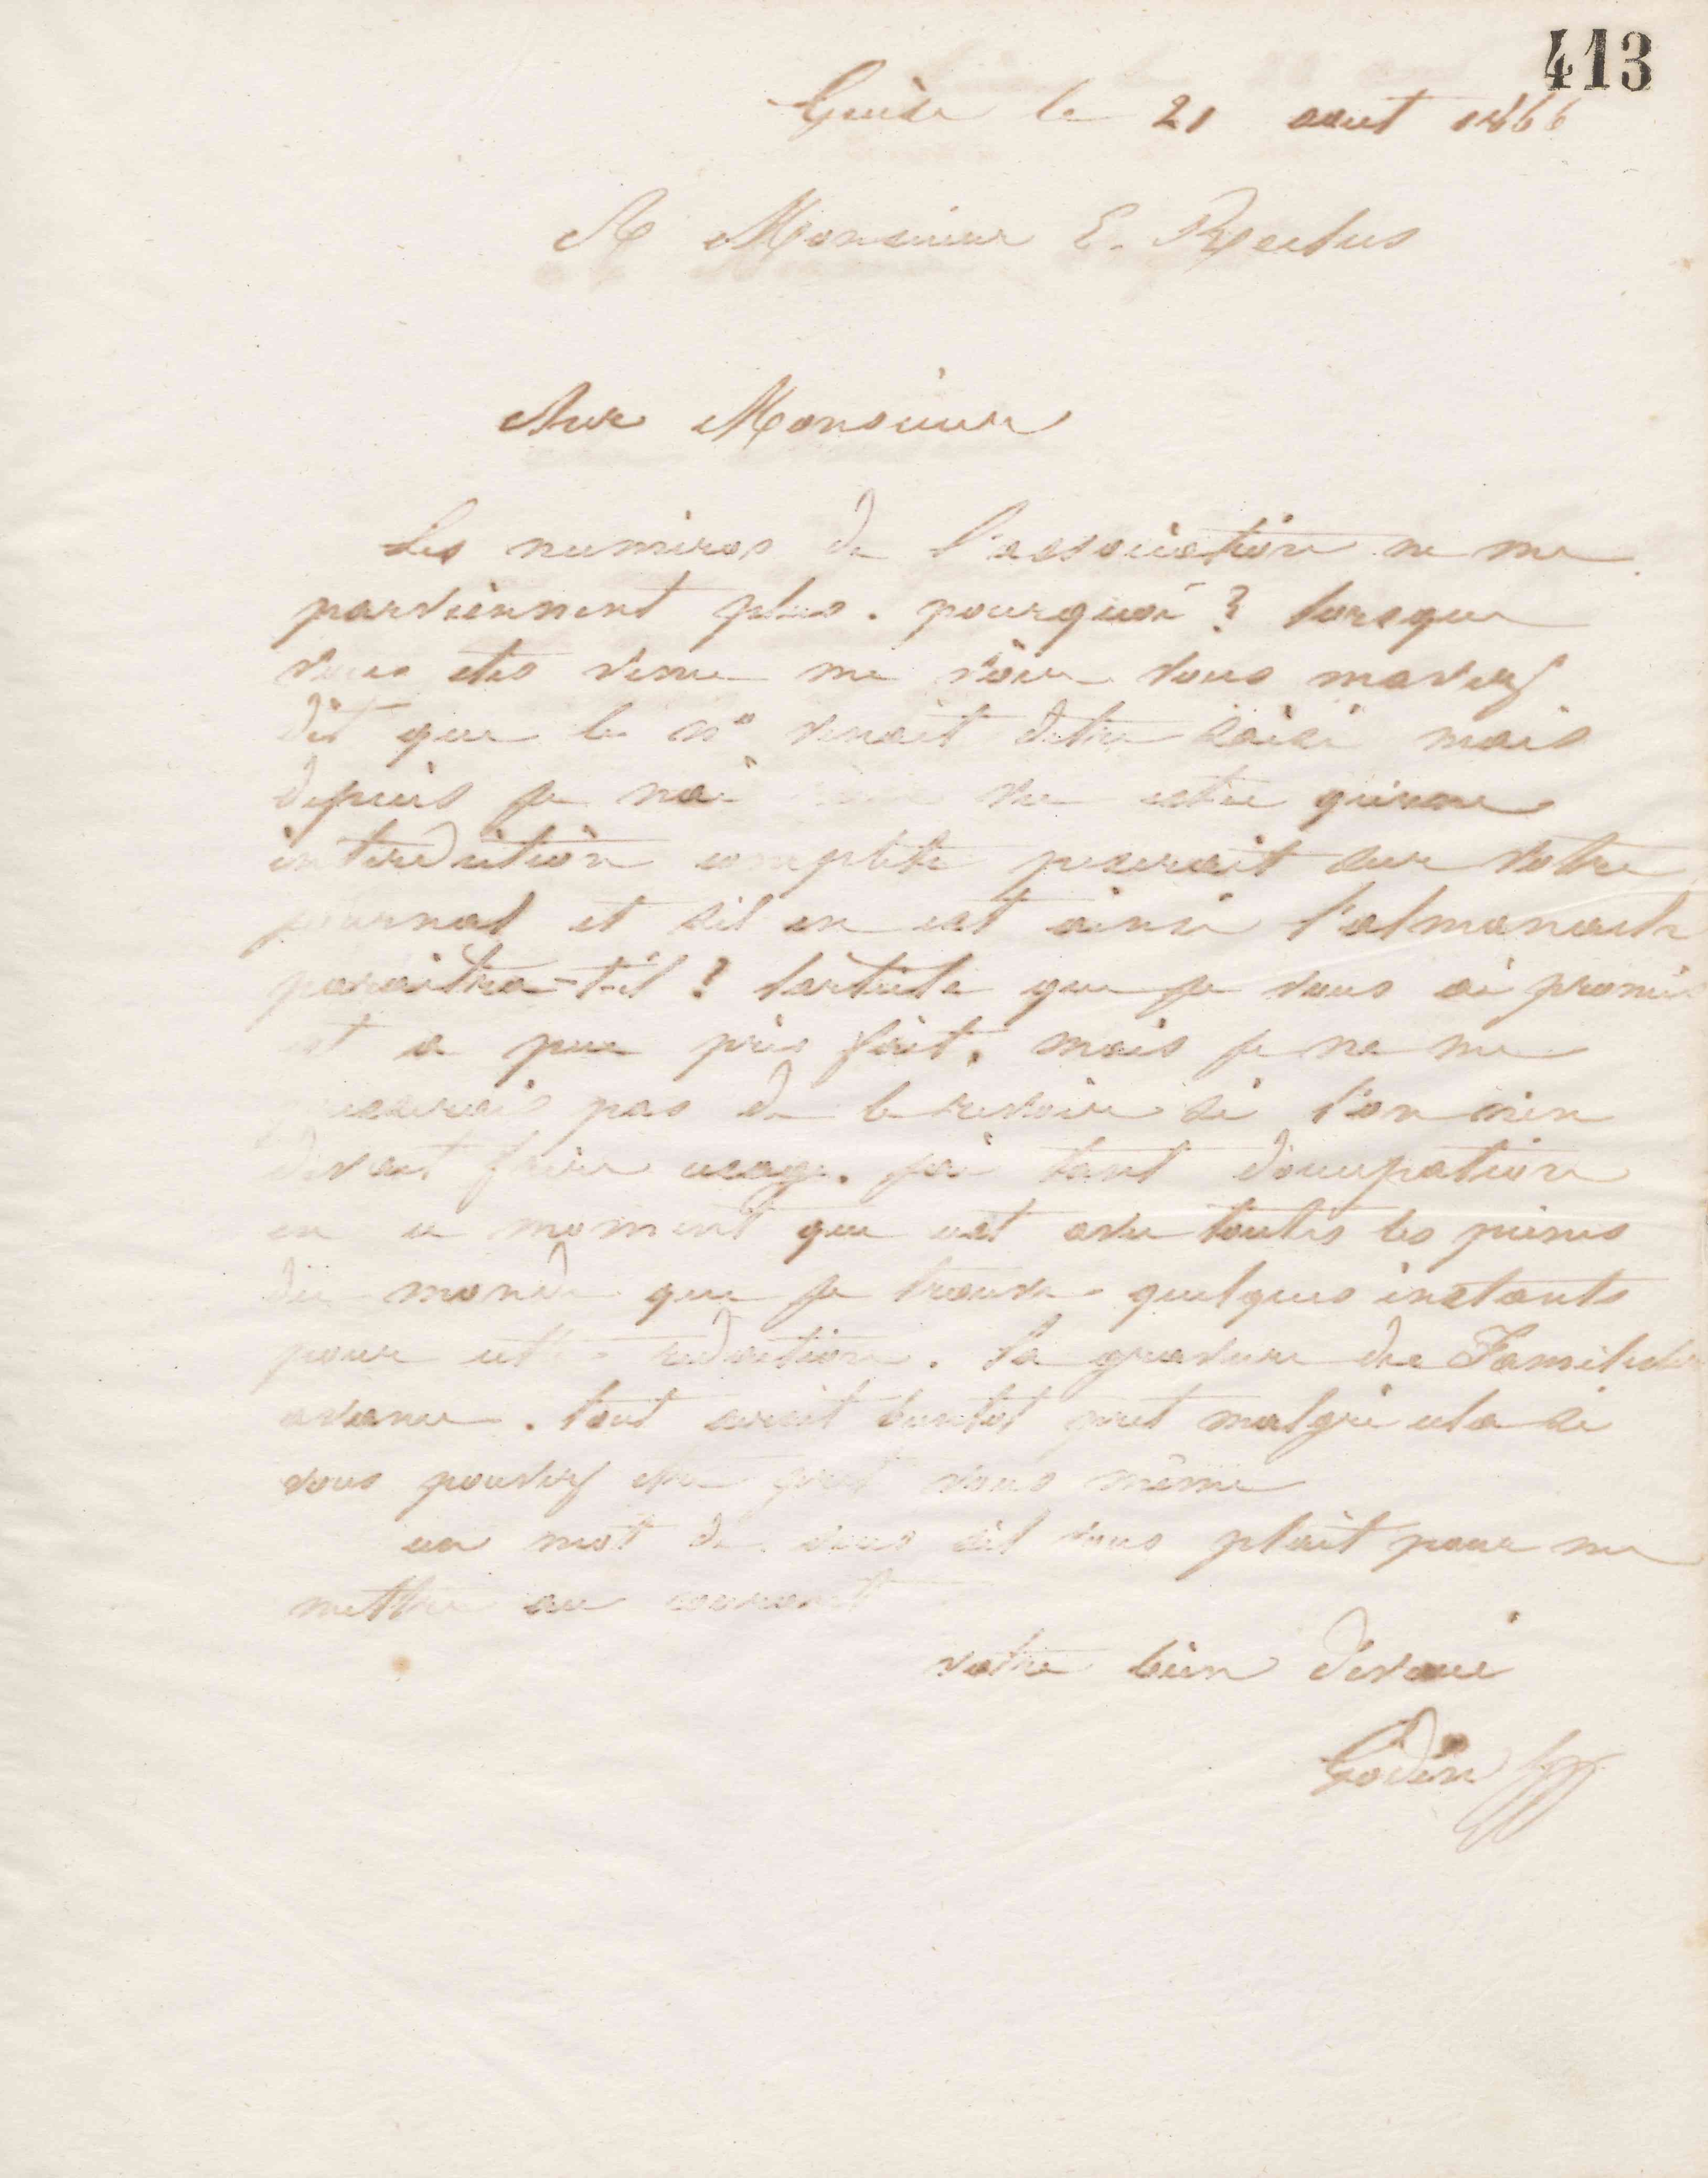 413
Guise le 21 aout 1866
A Monsieur E. Reclus
Cher Monsieur
Les numeros de l'association ne me
parviennent plus. pourquoi ? lorsque
vous etes venu me voir vous mavez
dit que le n° venait detre saisi mais
depuis je nai rien vu estce quune
interdiction complete peserait sur votre
journal et sil en est ainsi l'almanach
paraitra-t-il ? l'article que je vous ai promis
est a peu près fait. mais je ne me
presserais pas de le revoir si l'on nen
devait faire usage. jai tant d'occupation
en ce moment que cest avec toutes les peines
du monde que je trouve quelques instants
pour cette redaction. la gravure du Familistère
avance. tout serait bientot pret malgré cela si
vous pouviez etre pret vous même
un mot de vous sil vous plait pour me
mettre au courant
votre bien devoué
Godin